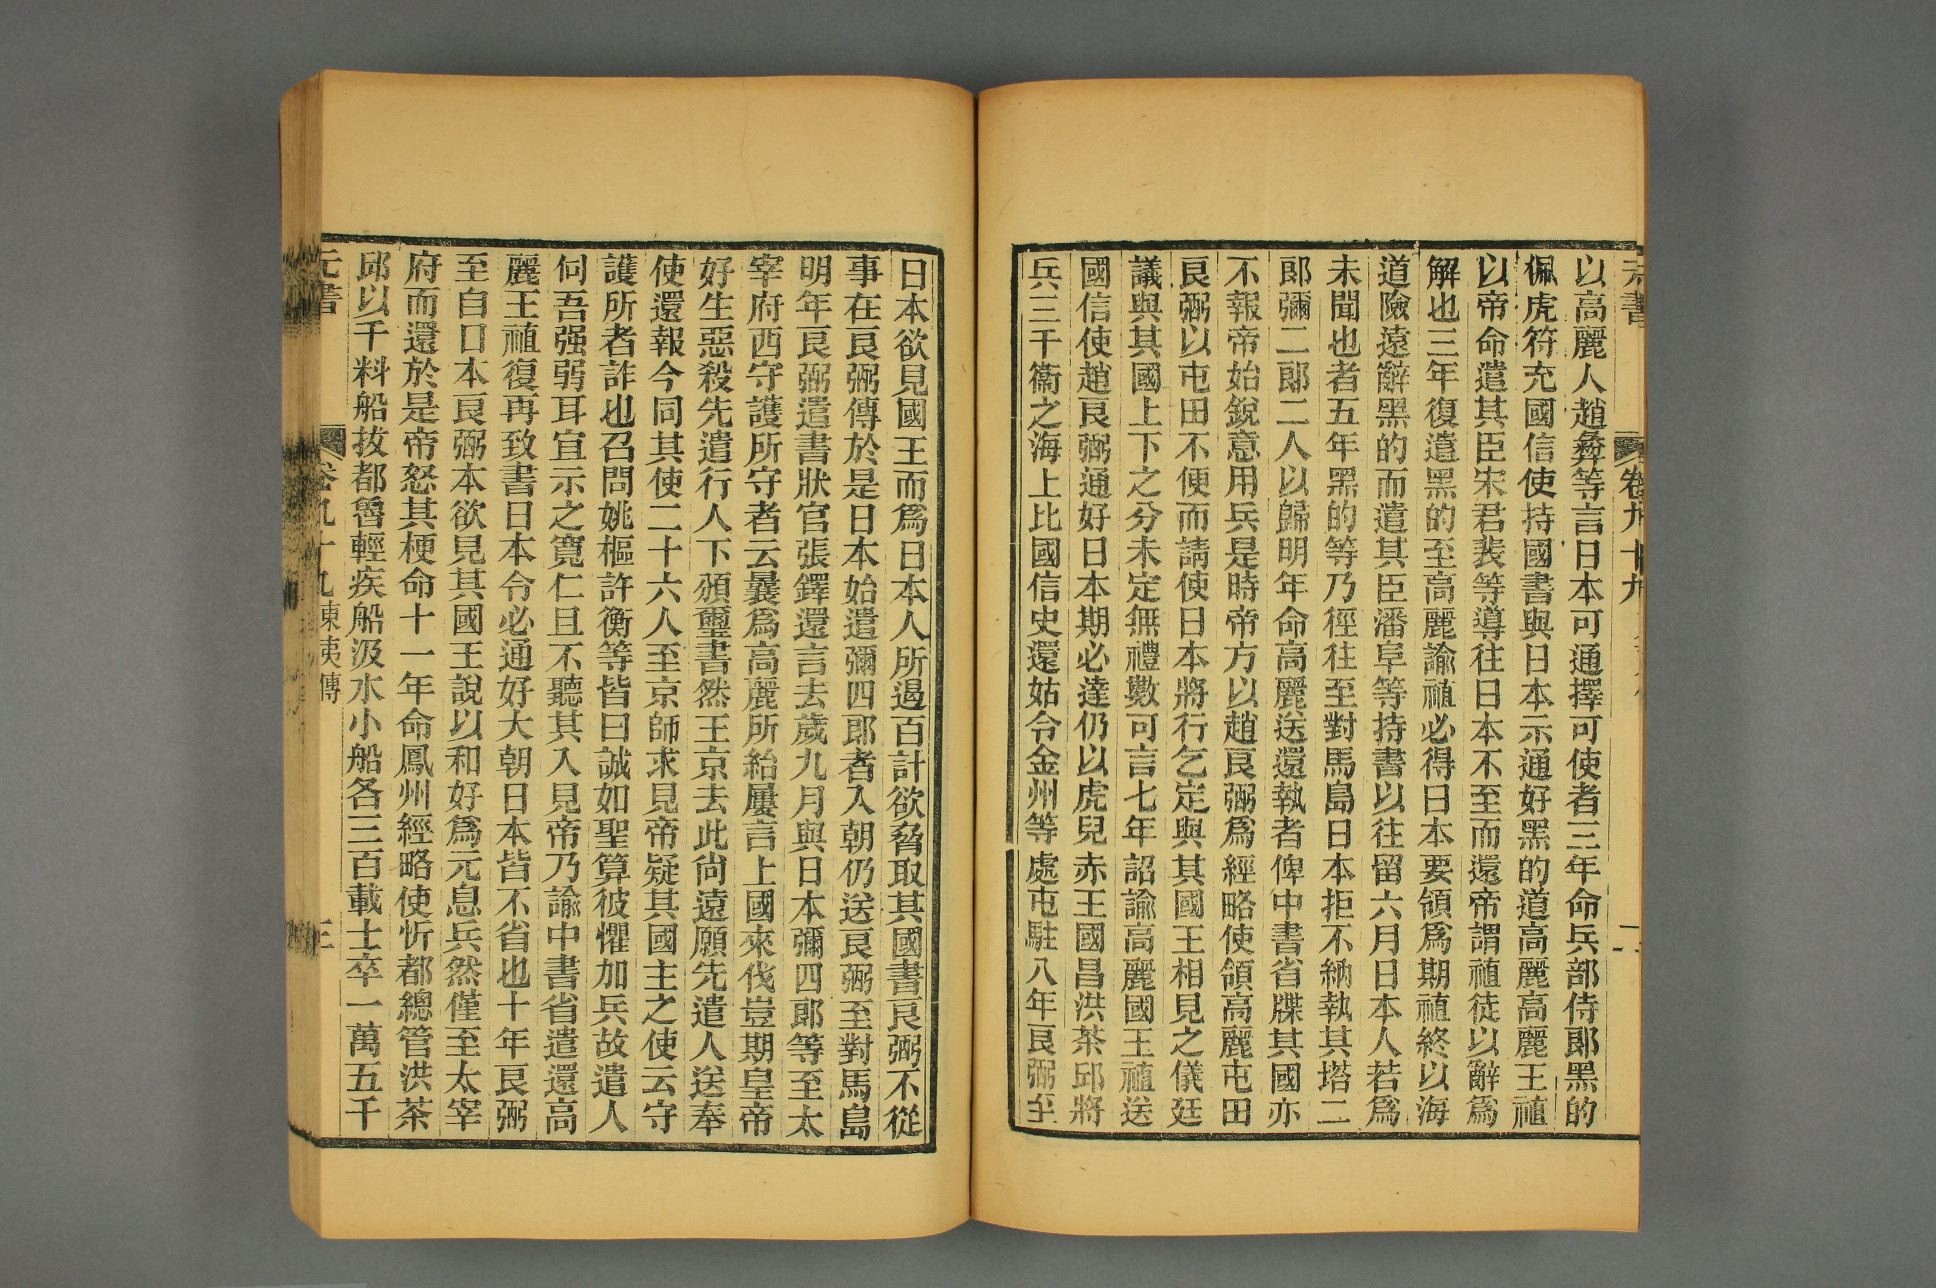 元書
卷九十九
以高麗人趙彝等言日本可通擇可使者三年命兵部侍郞黑的
佩虎符充國信使持國書與日本示通好黑的道高麗高麗王禃
以帝命遣其臣宋君裴等導往日本不至而還帝謂禃徒以辭爲
解也三年復遣黑的至高麗諭禃必得日本要領爲期禃終以海
道險遠辭黑的而遣其臣潘阜等持書以往留六月日本人若爲
未聞也者五年黑的等乃徑往至對馬島日本拒不納執其塔二
郞彌二郞二人以歸明年命高麗送還執者俾中書省牒其國亦
不報帝始銳意用兵是時帝方以趙良弼爲經略使領高麗屯田
良弼以屯田不便而請使日本將行乞定與其國王相見之儀廷
議與其國上下之分未定無禮數可言七年詔諭高麗國王禃送
國信使趙良弼通好日本期必達仍以虎兒赤王國昌洪茶邱將
兵三千衞之海上比國信史還姑令金州等處屯駐八年良弼至
日本欲見國王而爲日本人所遏百計欲脅取其國書良弼不從
事在良弼傳於是日本始遣彌四郞者入朝仍送良弼至對馬島
明年良弼遣書狀官張鐸還言去歲九月與日本彌四郞等至太
宰府西守護所守者云曩爲高麗所紿屢言上國來伐豈期皇帝
好生惡殺先遣行人下頒璽書然王京去此尙遠願先遣人送奉
使還報今同其使二十六人至京師求見帝疑其國主之使云守
護所者詐也召問姚樞許衡等皆曰誠如聖算彼懼加兵故遣人
伺吾强弱耳宜示之寬仁且不聽其入見帝乃諭中書省遣還高
麗王禃復再致書日本令必通好大朝日本皆不省也十年良弼
至自日本良弼本欲見其國王說以和好爲元息兵然僅至太宰
府而還於是帝怒其梗命十一年命鳳州經略使忻都總管洪茶
邱以千料船拔都魯輕疾船汲水小船各三百載士卒一萬五千
元書
卷九十九 東夷傳
三